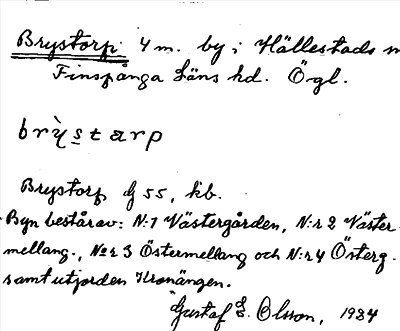 Brystorp. 4 m. by i Hällestads
Finspånga läns hd. Ögl.
brỳstarp
Brystorp G 55, kb.
Byn består av: N:1 Västergården, N:r 2 Väster-
mellang., No:r 3 Östermellang och N:r 4 Österg.
samt utjorden Kronängen.
Gustaf E. Olsson, 1934